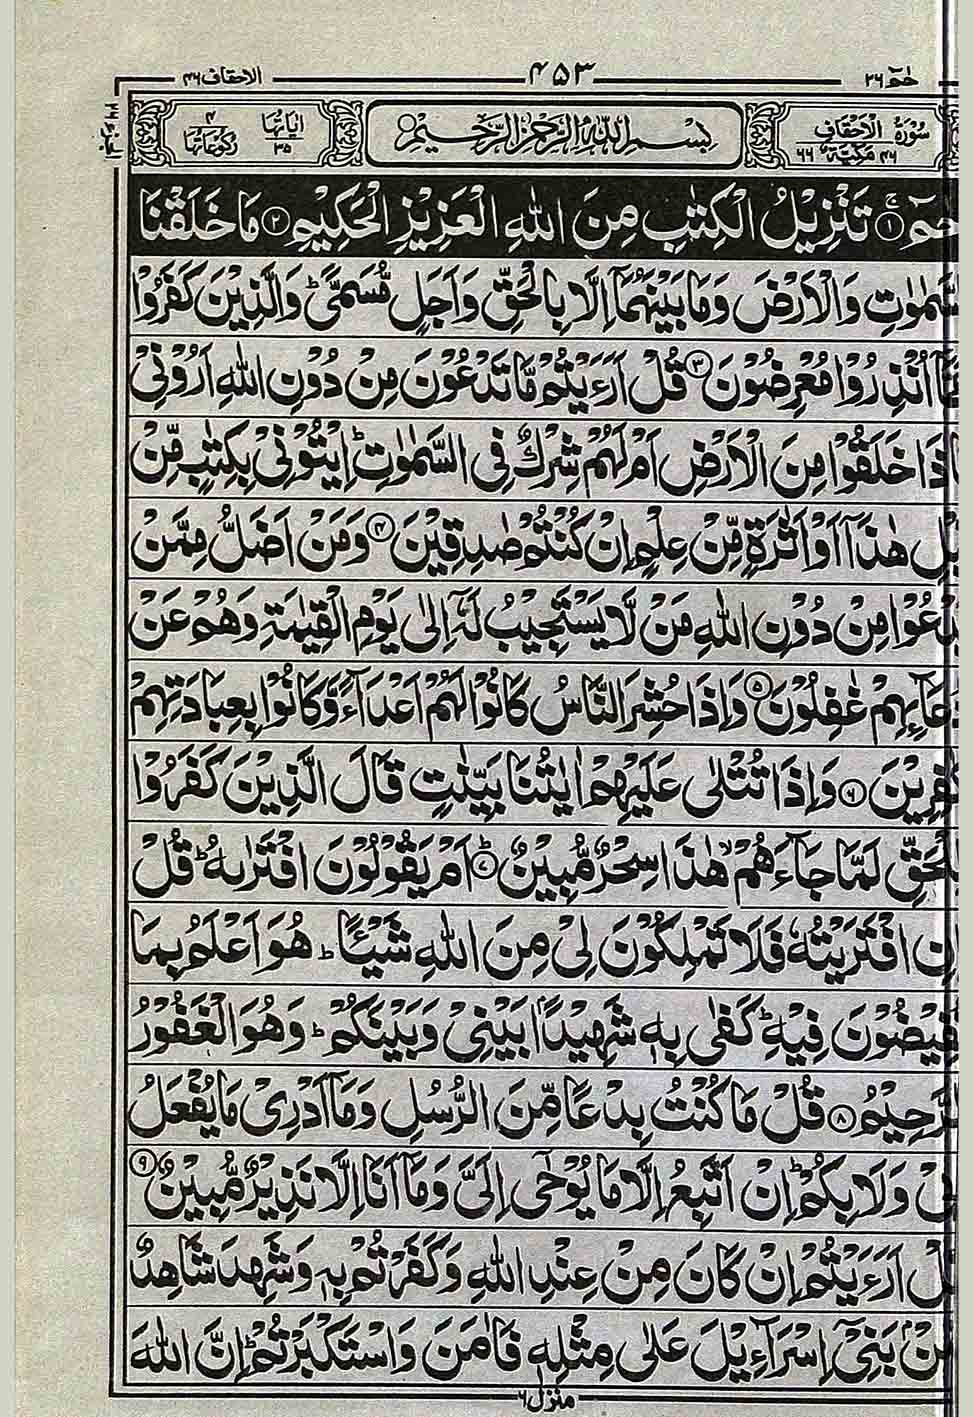 حٰمٓ ٢٦ ٤٥٣ الاحقاف ٤٦
سُوْرَةُ الْاَحْقَافِ مَكِّيَّةٌ ٤٦ ٦٦ بِسْمِ اللّٰهِ الرَّحْمٰنِ الرَّحِيْمِ اٰيَاتُهَا ٣٥ رُكُوْعَاتُهَا ٤
حٰمٓ ۚ﴿١﴾ تَنْزِيْلُ الْكِتٰبِ مِنَ اللّٰهِ الْعَزِيْزِ الْحَكِيْمِ ﴿٢﴾ مَا خَلَقْنَا
وَالْاَرْضَ وَمَا بَيْنَهُمَآ اِلَّا بِالْحَقِّ وَاَجَلٍ مُّسَمًّى ؕ وَالَّذِيْنَ كَفَرُوْا
اُنْذِرُوْا مُعْرِضُوْنَ ﴿٣﴾ قُلْ اَرَءَيْتُمْ مَّا تَدْعُوْنَ مِنْ دُوْنِ اللّٰهِ اَرُوْنِيْ
خَلَقُوْا مِنَ الْاَرْضِ اَمْ لَهُمْ شِرْكٌ فِي السَّمٰوٰتِ ؕ اِيْتُوْنِيْ بِكِتٰبٍ مِّنْ
هٰذَآ اَوْ اَثٰرَةٍ مِّنْ عِلْمٍ اِنْ كُنْتُمْ صٰدِقِيْنَ ﴿٤﴾ وَمَنْ اَضَلُّ مِمَّنْ
مِنْ دُوْنِ اللّٰهِ مَنْ لَّا يَسْتَجِيْبُ لَهٗٓ اِلٰى يَوْمِ الْقِيٰمَةِ وَهُمْ عَنْ
غٰفِلُوْنَ ﴿٥﴾ وَاِذَا حُشِرَ النَّاسُ كَانُوْا لَهُمْ اَعْدَآءً وَّكَانُوْا بِعِبَادَتِهِمْ
﴿٦﴾ وَاِذَا تُتْلٰى عَلَيْهِمْ اٰيٰتُنَا بَيِّنٰتٍ قَالَ الَّذِيْنَ كَفَرُوْا
لَمَّا جَآءَهُمْ ۙ هٰذَا سِحْرٌ مُّبِيْنٌ ؕ﴿٧﴾ اَمْ يَقُوْلُوْنَ افْتَرٰىهُ ؕ قُلْ
اِنِ افْتَرَيْتُهٗ فَلَا تَمْلِكُوْنَ لِيْ مِنَ اللّٰهِ شَيْـًٔا ؕ هُوَ اَعْلَمُ بِمَا
فِيْهِ ؕ كَفٰى بِهٖ شَهِيْدًۢا بَيْنِيْ وَبَيْنَكُمْ ؕ وَهُوَ الْغَفُوْرُ
﴿٨﴾ قُلْ مَا كُنْتُ بِدْعًا مِّنَ الرُّسُلِ وَمَآ اَدْرِيْ مَا يُفْعَلُ
وَلَا بِكُمْ ؕ اِنْ اَتَّبِعُ اِلَّا مَا يُوْحٰٓى اِلَيَّ وَمَآ اَنَا اِلَّا نَذِيْرٌ مُّبِيْنٌ ﴿٩﴾
اَرَءَيْتُمْ اِنْ كَانَ مِنْ عِنْدِ اللّٰهِ وَكَفَرْتُمْ بِهٖ وَشَهِدَ شَاهِدٌ
بَنِيْٓ اِسْرَآءِيْلَ عَلٰى مِثْلِهٖ فَاٰمَنَ وَاسْتَكْبَرْتُمْ ؕ اِنَّ اللّٰهَ
منزل ٦